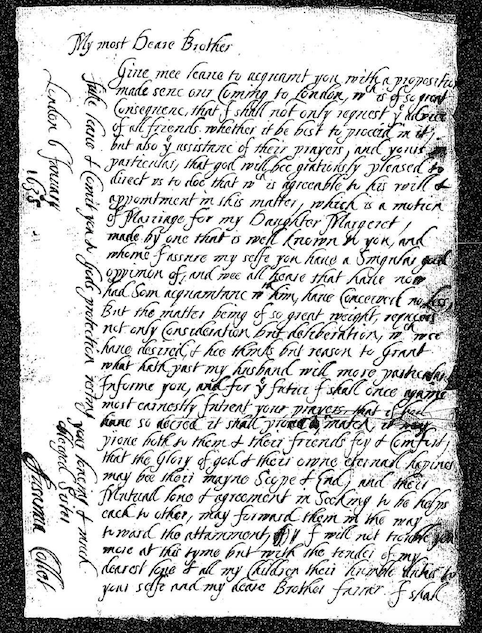 My most Deare Brother
Give mee leave to acquaint you with a proposition
made senc our Coming to London, wch is of so great
Consequenc, that I shall not only request ye advice
of all friends whether it be best to proceed in it,
but also ye assistanc of their prayers, and yours in
particular, that god will bee gratiously pleased to
direct us to doe that wch is agreeable to his will &
appointment in this matter, which is a motion
of Marriage for my Daughter Margeret,
made by one that is well known to you, and
whome I assure my selfe you have a Singular good
oppinion of, and wee all heare that have now
had Som acquaintanc wth him, have Conceived no less,
But the matter being of so great weight, requires
not only Consideration but deliberation, wch wee
have desired, & hee thinks but reason to Grant
what hath past my husband will more particular
Informe you, and for ye futice I shall once againe
most earnestly Intreat your prayers that if god
have so decred it shall prove a match it may
prove both to them & their friends Joy & Comfort,
that the Glory of god & their owne eternall hapines
may bee their mayne Scope & End, and their
Mutuall love & agreement in Seeking to be helps
each to other, may forward them in the way
toward the attainment I will not trouble you
more at this tyme but with the tender of my
dearest love & all my Children their humble duties to
your selfe and my deare Brother farrar I shall
take leave & Comit you to gods protection resting
your loveing & much
obleged Sister
Susanna Collet
London 6 February
163